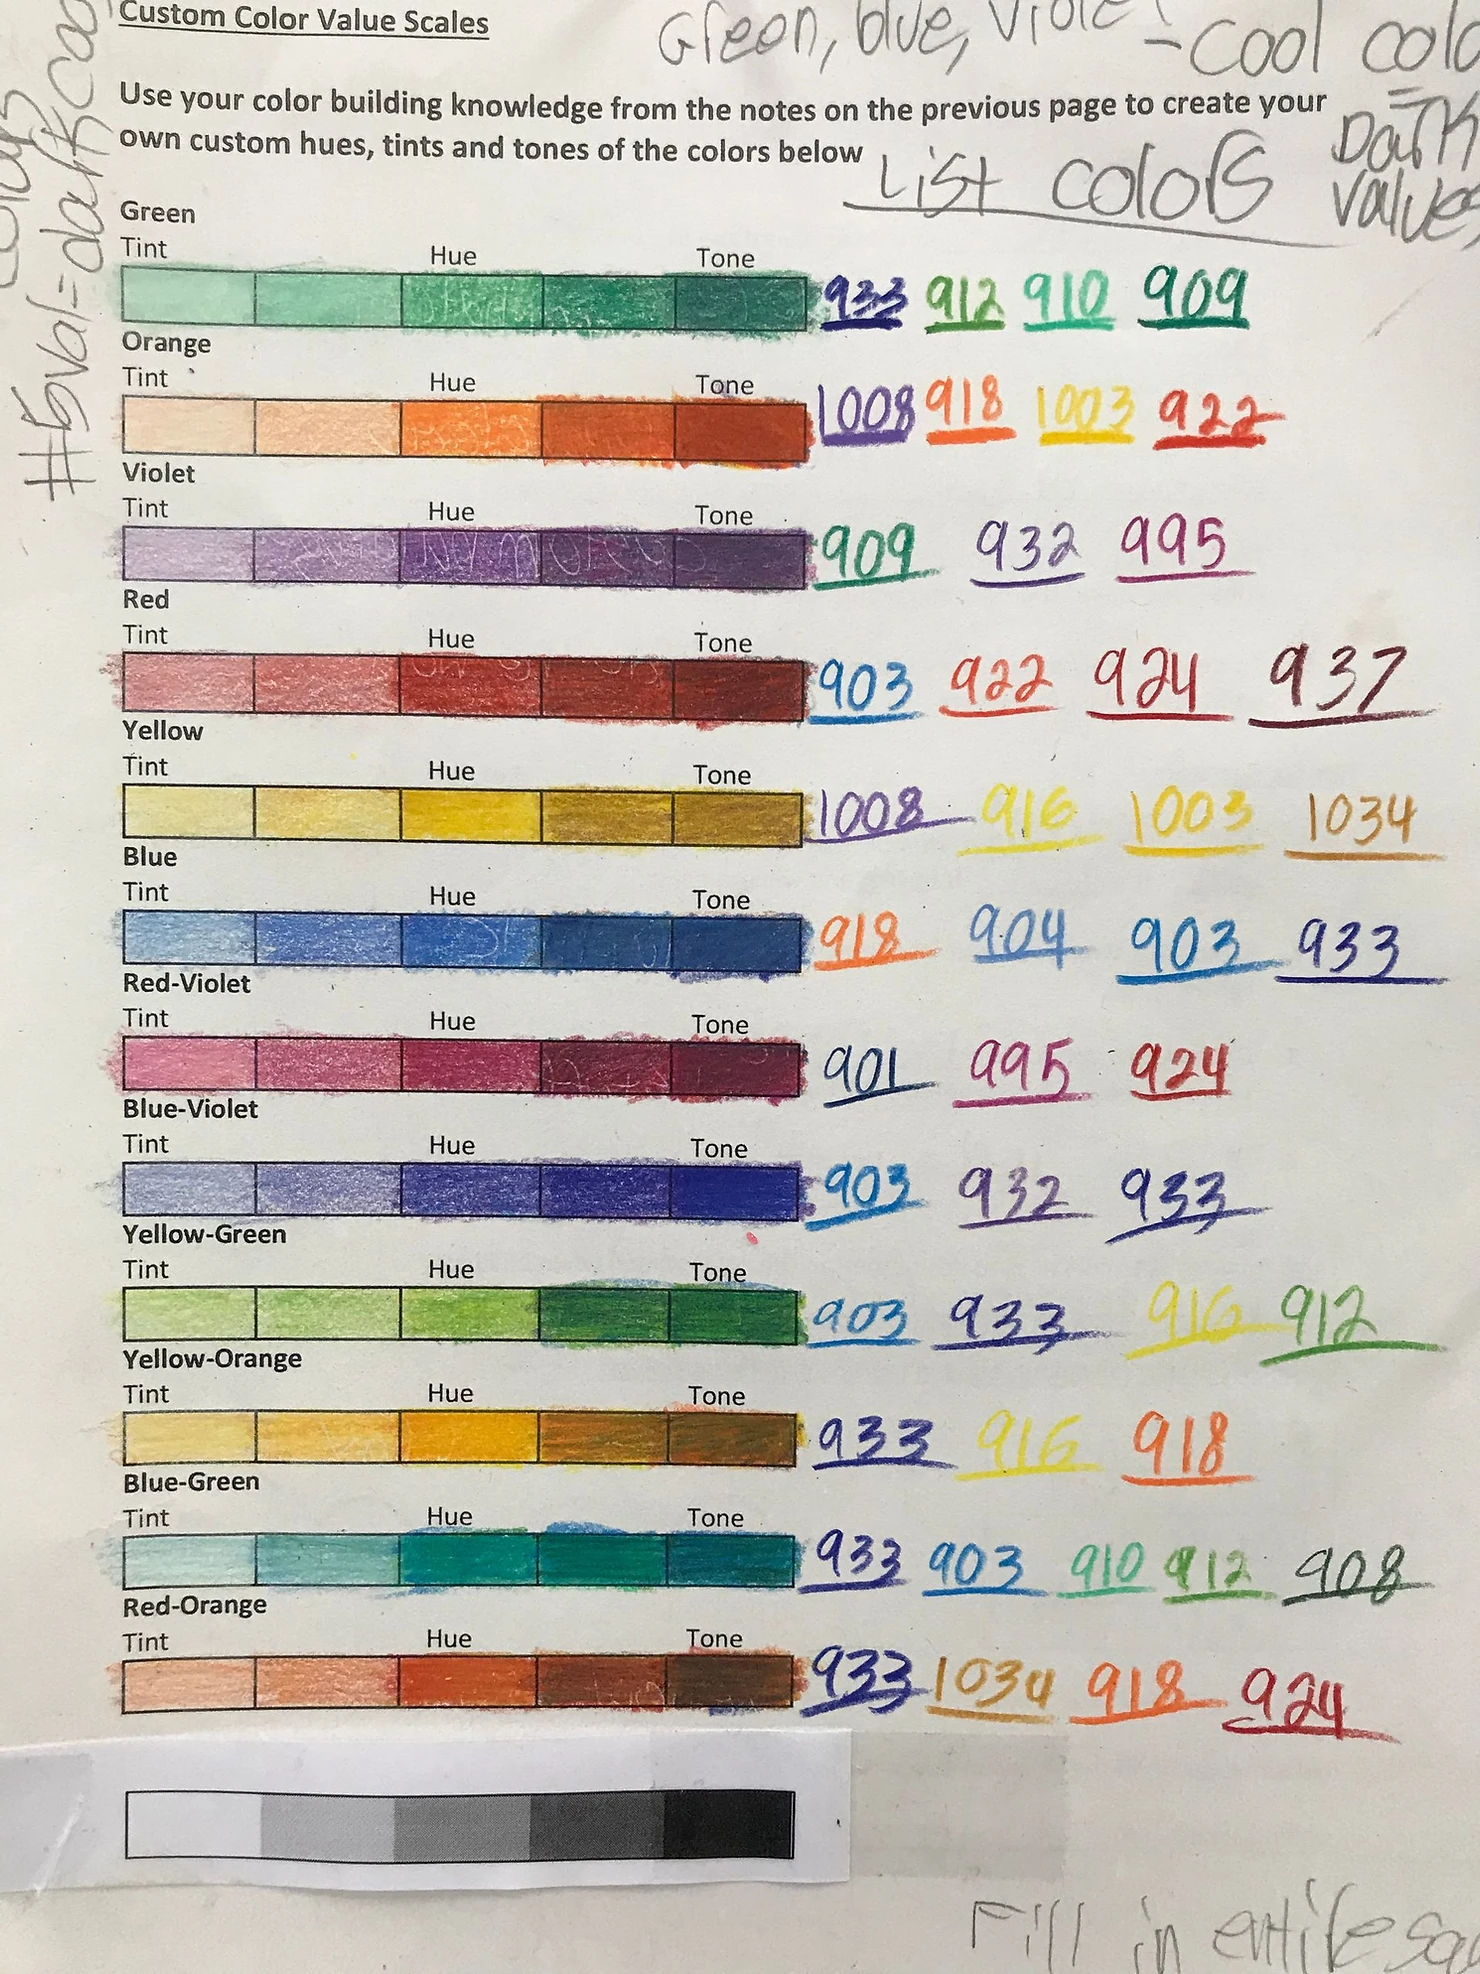 Custom Color Value Scales
Green, blue, Viole
= Cool colo
Use your color building knowledge from the notes on the previous page to create your
own custom hues, tints and tones of the colors below
Dark
values
List colors
#5val=dark
Green
Tint Hue Tone
933 912 910 909
Orange
Tint Hue Tone
1008 918 1003 922
Violet
Tint Hue Tone
909 932 995
Red
Tint Hue Tone
903 922 924 937
Yellow
Tint Hue Tone
1008 916 1003 1034
Blue
Tint Hue Tone
918 904 903 933
Red-Violet
Tint Hue Tone
901 995 924
Blue-Violet
Tint Hue Tone
903 932 933
Yellow-Green
Tint Hue Tone
903 933 916 912
Yellow-Orange
Tint Hue Tone
933 916 918
Blue-Green
Tint Hue Tone
933 903 910 912 908
Red-Orange
Tint Hue Tone
933 1034 918 924
Fill in entire